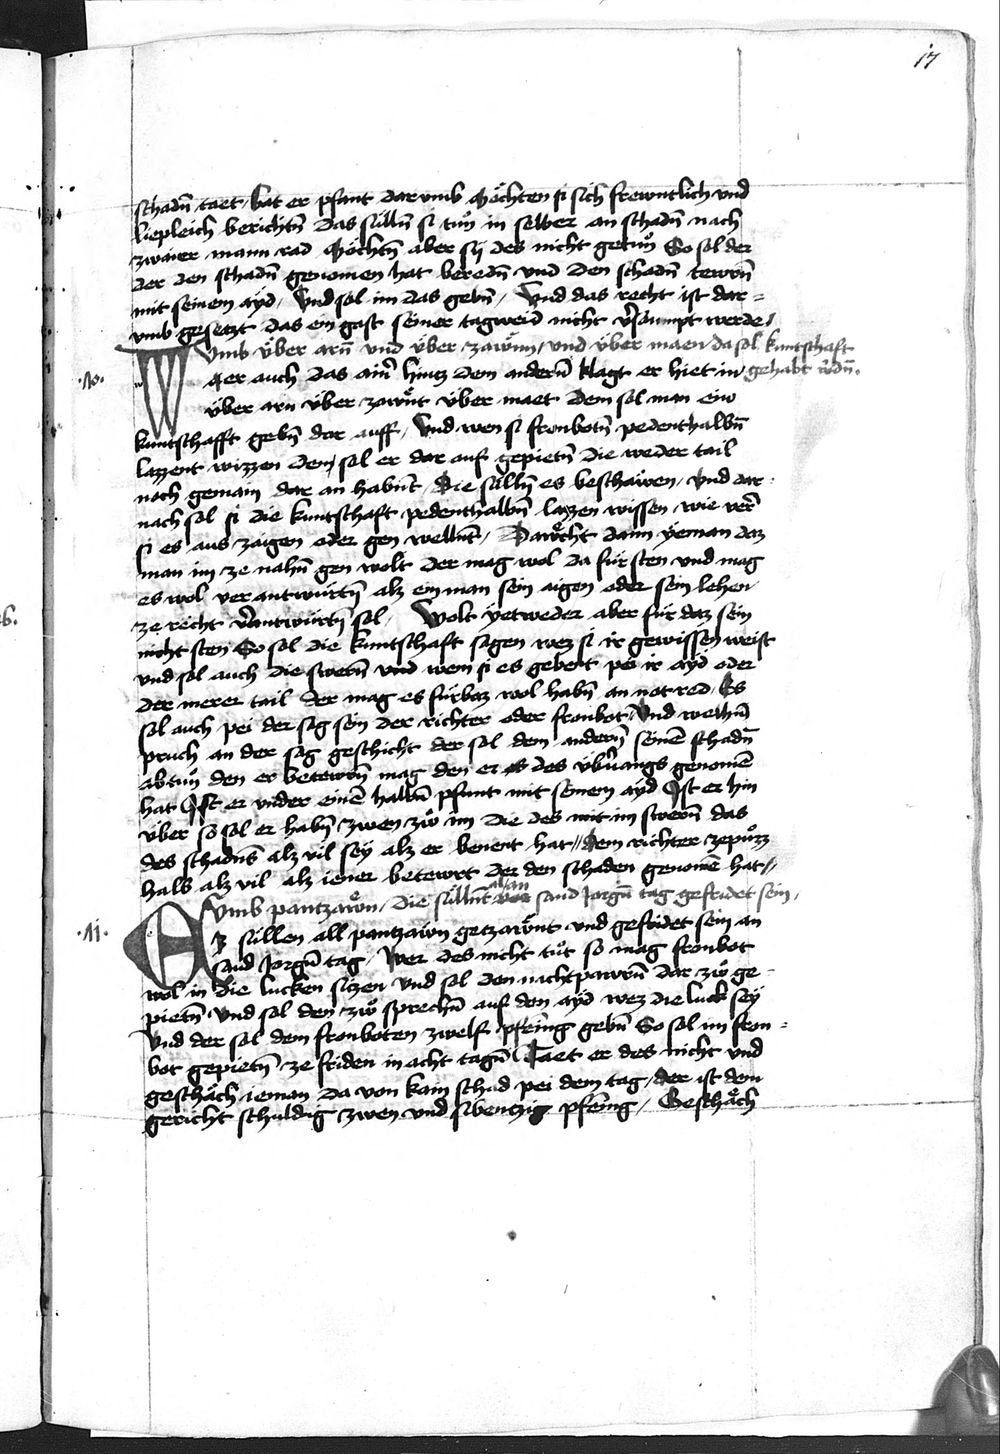 17
schadn̄ taet hat er pfant dar vmb Möchten si sich frewntlich vnd
liepleich berichtn̄ das sulln̄ si tün in selber an schadn̄ nach
zwaier mann rad Möchtn̄ aber sy des nicht getün So sol der
der den schadn̄ genomen hat beredn̄ vnd den schadn̄ tewrn̄
mit seinem ayd / Vnd sol im das gebn̄ / Vnd das recht ist dar=
vmb gesetzt das ein gast seiner tagweid nicht v̄saumpt werde /
Vmb über arn̄ vnd über zäwnn / vnd über maen da sol kuntschaft
.10. gehabt w̄dn̄.
Wer auch das ain̄ hintz dem andern̄ klagt er hiet in
über arn über zäwnt über maet dem sol man ein
kuntschafft gebn̄ dar auff / Vnd wen si fronbotn̄ pedenthalbn̄
lazzent wizzen dem sol er dar auf gepietn̄ die weder tail
noch gemain dar an habnt / Die sülln̄ es beschawen / vnd dar
nach sol si die kuntschaft pedenthalbn̄ lazzen wissen / wie ver̄
si es aus zaigen oder gen wellnt / Dawcht dann yeman daz
man im ze nahn̄ gen wolt der mag wol da für sten vnd mag
es wol verantwürtn̄ alz ein man sein aigen oder sein lehen
ze recht v̄antwürtn̄ sol / Wolt yetweder aber für daz sein
nicht sten So sol die kuntschaft sagen wez si ir gewissen weist
vnd sol auch die swern̄ vnd wem si es gebent pei ir ayd oder
der merer tail der mag es fürbaz wol habn̄ an not red / Es
sol auch pei der sag sein der richter oder fronbot / Vnd welhn̄
pruch an der sag geschicht der sol dem andern̄ seinē schadn̄
abtün den er betewrn̄ mag den er des übn̄angs genomē
hat Ist er vnder einē halbn̄ pfunt mit seinem ayd Ist er hin
über so sol er habn̄ zwen zw im die des mit im swern̄ das
des schadns̄ alz vil sey alz er benent hat // dem richter ze püzz
halb alz vil alz iener betewrt der den schaden genomē hat //
Vmb pantzawn / die süllnt an sand Jorgn̄ tag gefridet sein /
.11. Ez sullen all pantzäwn getzäwnt vnd gefridet sein an
sand Jorgn̄ tag / Wer des nicht tüt so mag fronbot
wol in die lucken sitzen vnd sol den nachtpawrn̄ dar zw ge=
pietn̄ vnd sol den zw sprechn̄ auf den ayd wez die luck sey
Vnd der sol dem fronboten zwelf pfēnig gebn̄ So sol im fron=
bot gepietn̄ ze friden in acht tagn̄ Taet er des nicht vnd
geschäch ieman da von kain schad pei dem tag / der ist dem
gericht schuldig zwen vnd sibentzig pfēnig / Geschäch